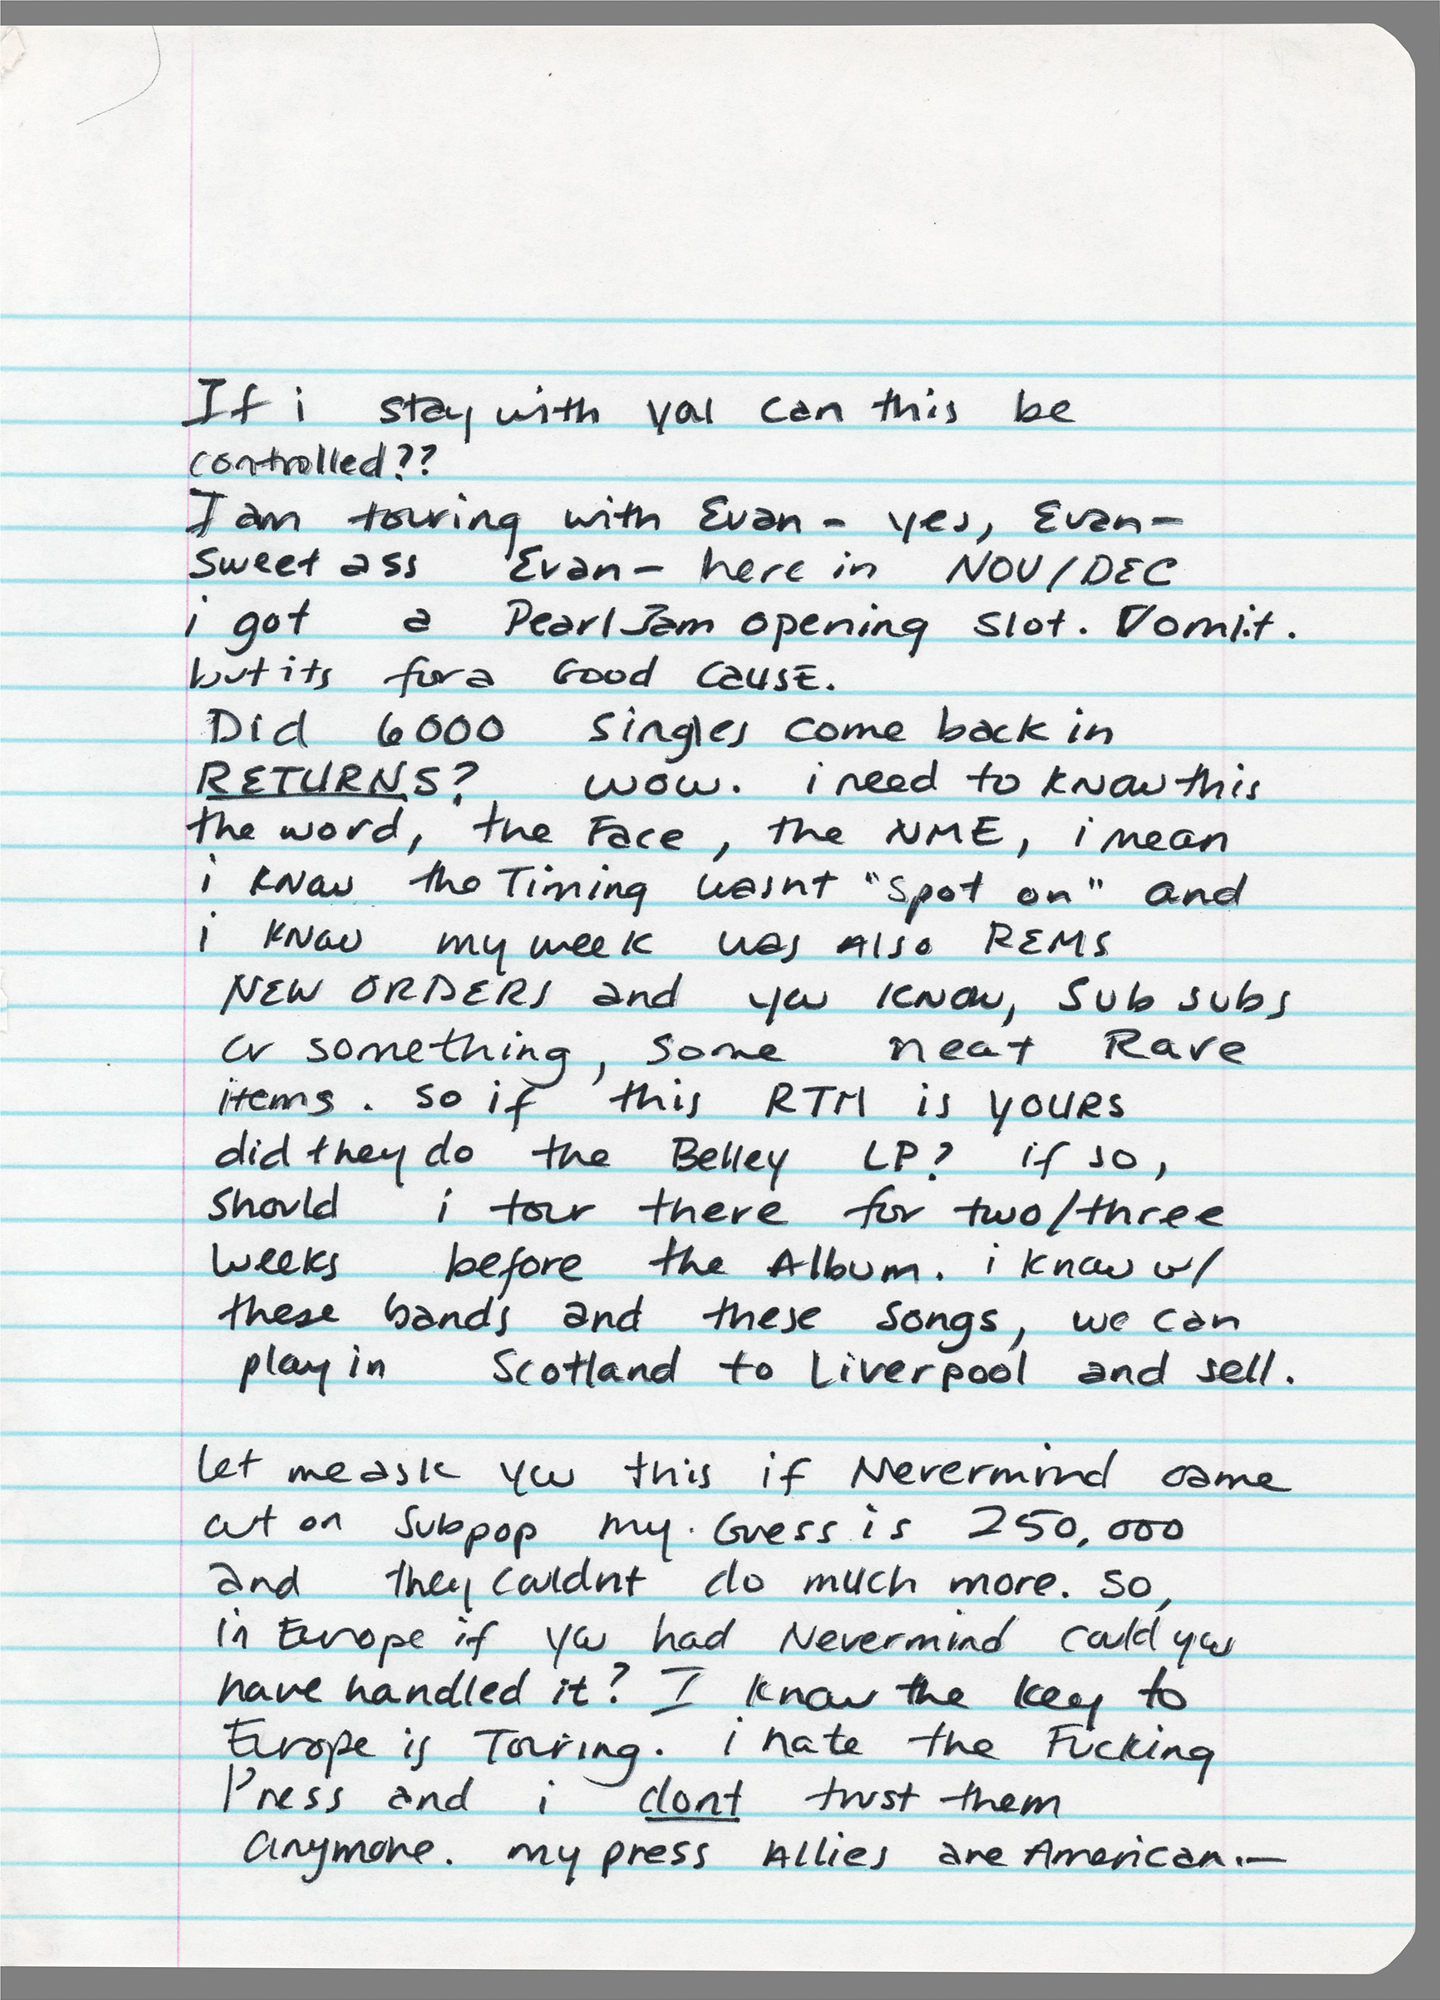 If i stay with yal can this be
controlled??
I am touring with Evan - yes, Evan-
Sweet ass Evan- here in NOV/DEC
i got a Pearl Jam opening slot. Vomit.
but its for a Good CAUSE.
Did 6000 singles come back in
RETURNS? wow. i need to know this
the word, the Face, the NME, i mean
i know the Timing wasnt "spot on" and
i know my week was Also REMS
NEW ORDERS and you know, Sub subs
or something, some neat Rave
items. so if this RTM is yours
did they do the Belley LP? if so,
should i tour there for two/three
weeks before the Album. i know w/
these bands and these songs, we can
play in Scotland to Liverpool and sell.
let me ask you this if Nevermind came
out on Subpop my Guess is 250,000
and they couldnt do much more. so,
in Europe if you had Nevermind could you
have handled it? I know the key to
Europe is Touring. i hate the Fucking
Press and i dont trust them
anymore. my press Allies are American.-